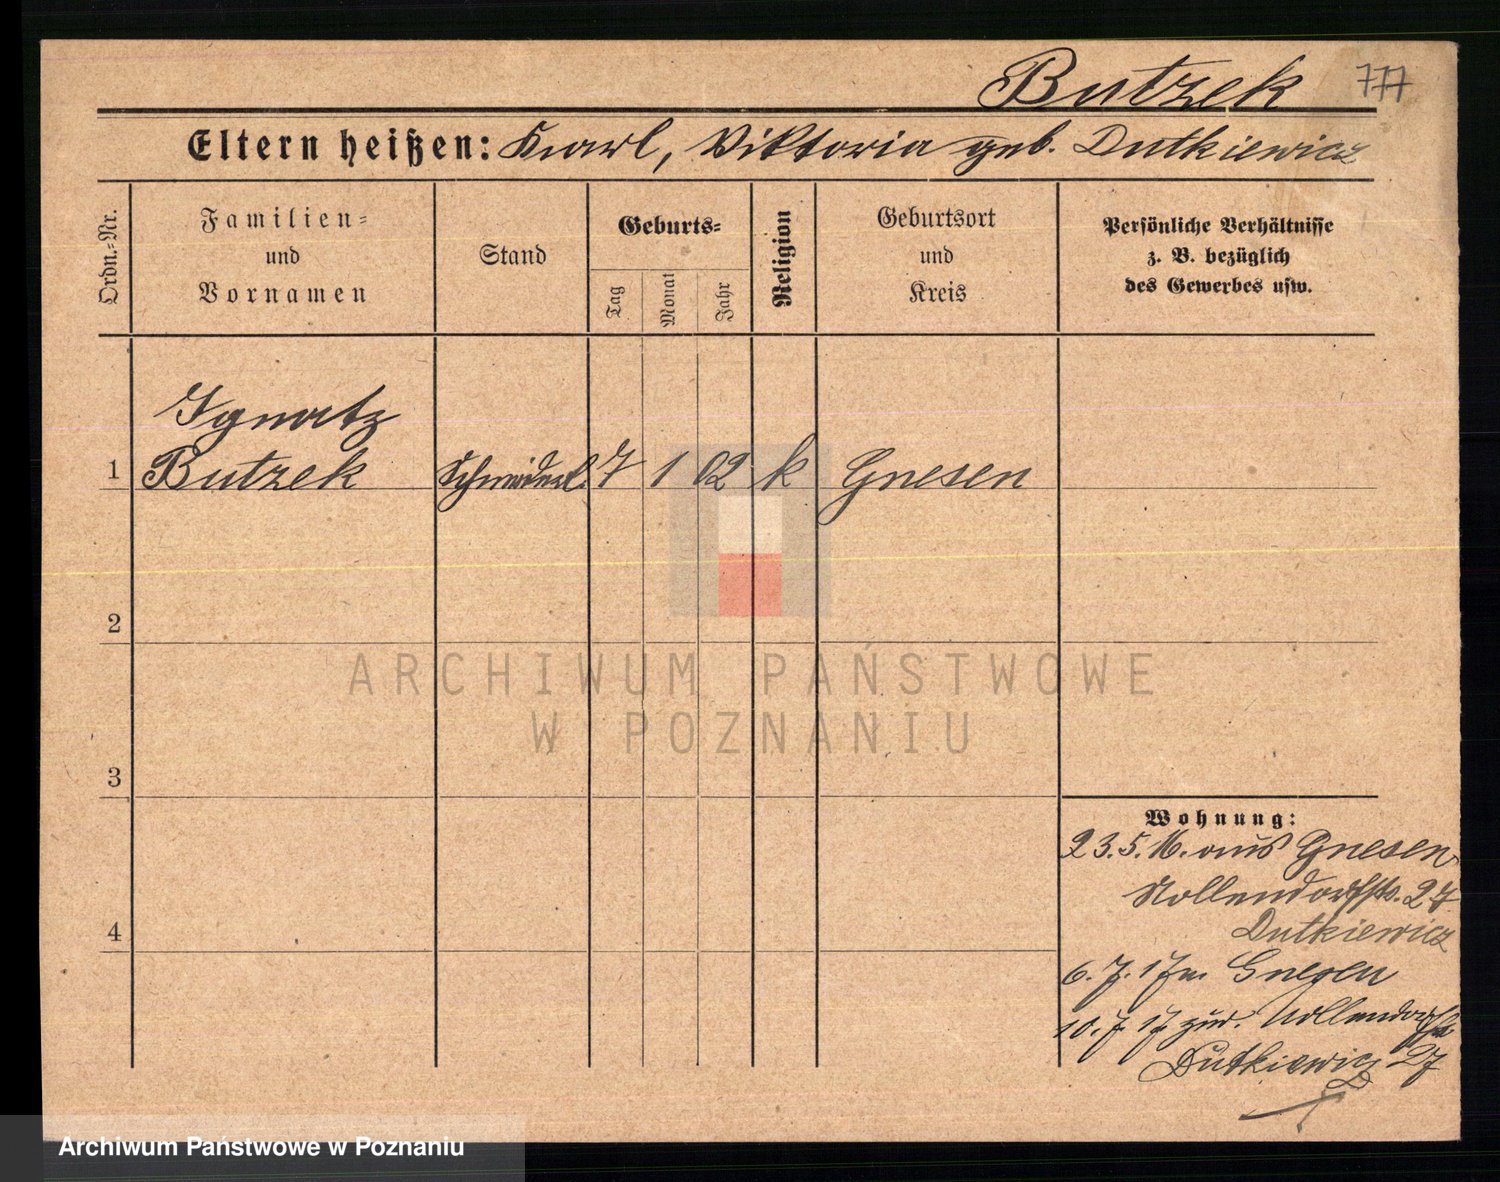 Butzek 777
Eltern heißen: Karl, Viktoria geb. Dutkiewicz
Ordn.-Nr.
Familien-
und
Vornamen
Stand
Geburts-
Tag
Monat
Jahr
Religion
Geburtsort
und
Kreis
Persönliche Verhältnisse
z. B. bezüglich
des Gewerbes usw.
Ignatz
1 Butzek Schneiderl. 7 1 02 k Gnesen
2
ARCHIWUM PAŃSTWOWE
W POZNANIU
3
Wohnung:
23.5.16. aus Gnesen
Nollendorfstr. 27
4
Dutkiewicz
6.7.17 n. Gnesen
10.7.17 zur. Nollendorfst
Dutkiewicz 27
Archiwum Państwowe w Poznaniu